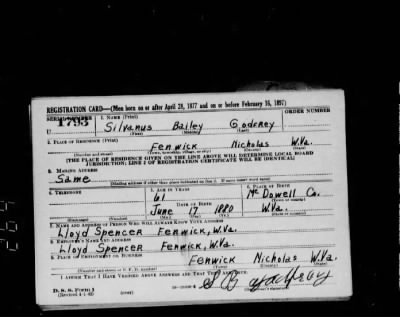 REGISTRATION CARD—(Men born on or after April 28, 1877 and on or before February 16, 1897)
SERIAL NUMBER 1. NAME (Print) ORDER NUMBER
1793
U
Silvanus Bailey Godfrey
(First) (Middle) (Last)
2. PLACE OF RESIDENCE (Print)
Fenwick Nicholas W.Va.
(Number and street) (Town, township, village, or city) (County) (State)
[THE PLACE OF RESIDENCE GIVEN ON THE LINE ABOVE WILL DETERMINE LOCAL BOARD
JURISDICTION; LINE 2 OF REGISTRATION CERTIFICATE WILL BE IDENTICAL]
3. MAILING ADDRESS
Same
[Mailing address if other than place indicated on line 2. If same insert word same]
4. TELEPHONE 5. AGE IN YEARS 6. PLACE OF BIRTH
61 McDowell Co.
DATE OF BIRTH (Town or county)
June 17 1880 W.Va.
(Exchange) (Number) (Mo.) (Day) (Yr.) (State or country)
7. NAME AND ADDRESS OF PERSON WHO WILL ALWAYS KNOW YOUR ADDRESS
Lloyd Spencer Fenwick, W.Va.
8. EMPLOYER'S NAME AND ADDRESS
Lloyd Spencer Fenwick, W.Va.
9. PLACE OF EMPLOYMENT OR BUSINESS
Fenwick Nicholas W.Va.
(Number and street or R. F. D. number) (Town) (County) (State)
I AFFIRM THAT I HAVE VERIFIED ABOVE ANSWERS AND THAT THEY ARE TRUE.
S B Godfrey
D. S. S. Form 1
(Revised 4-1-42) (over)